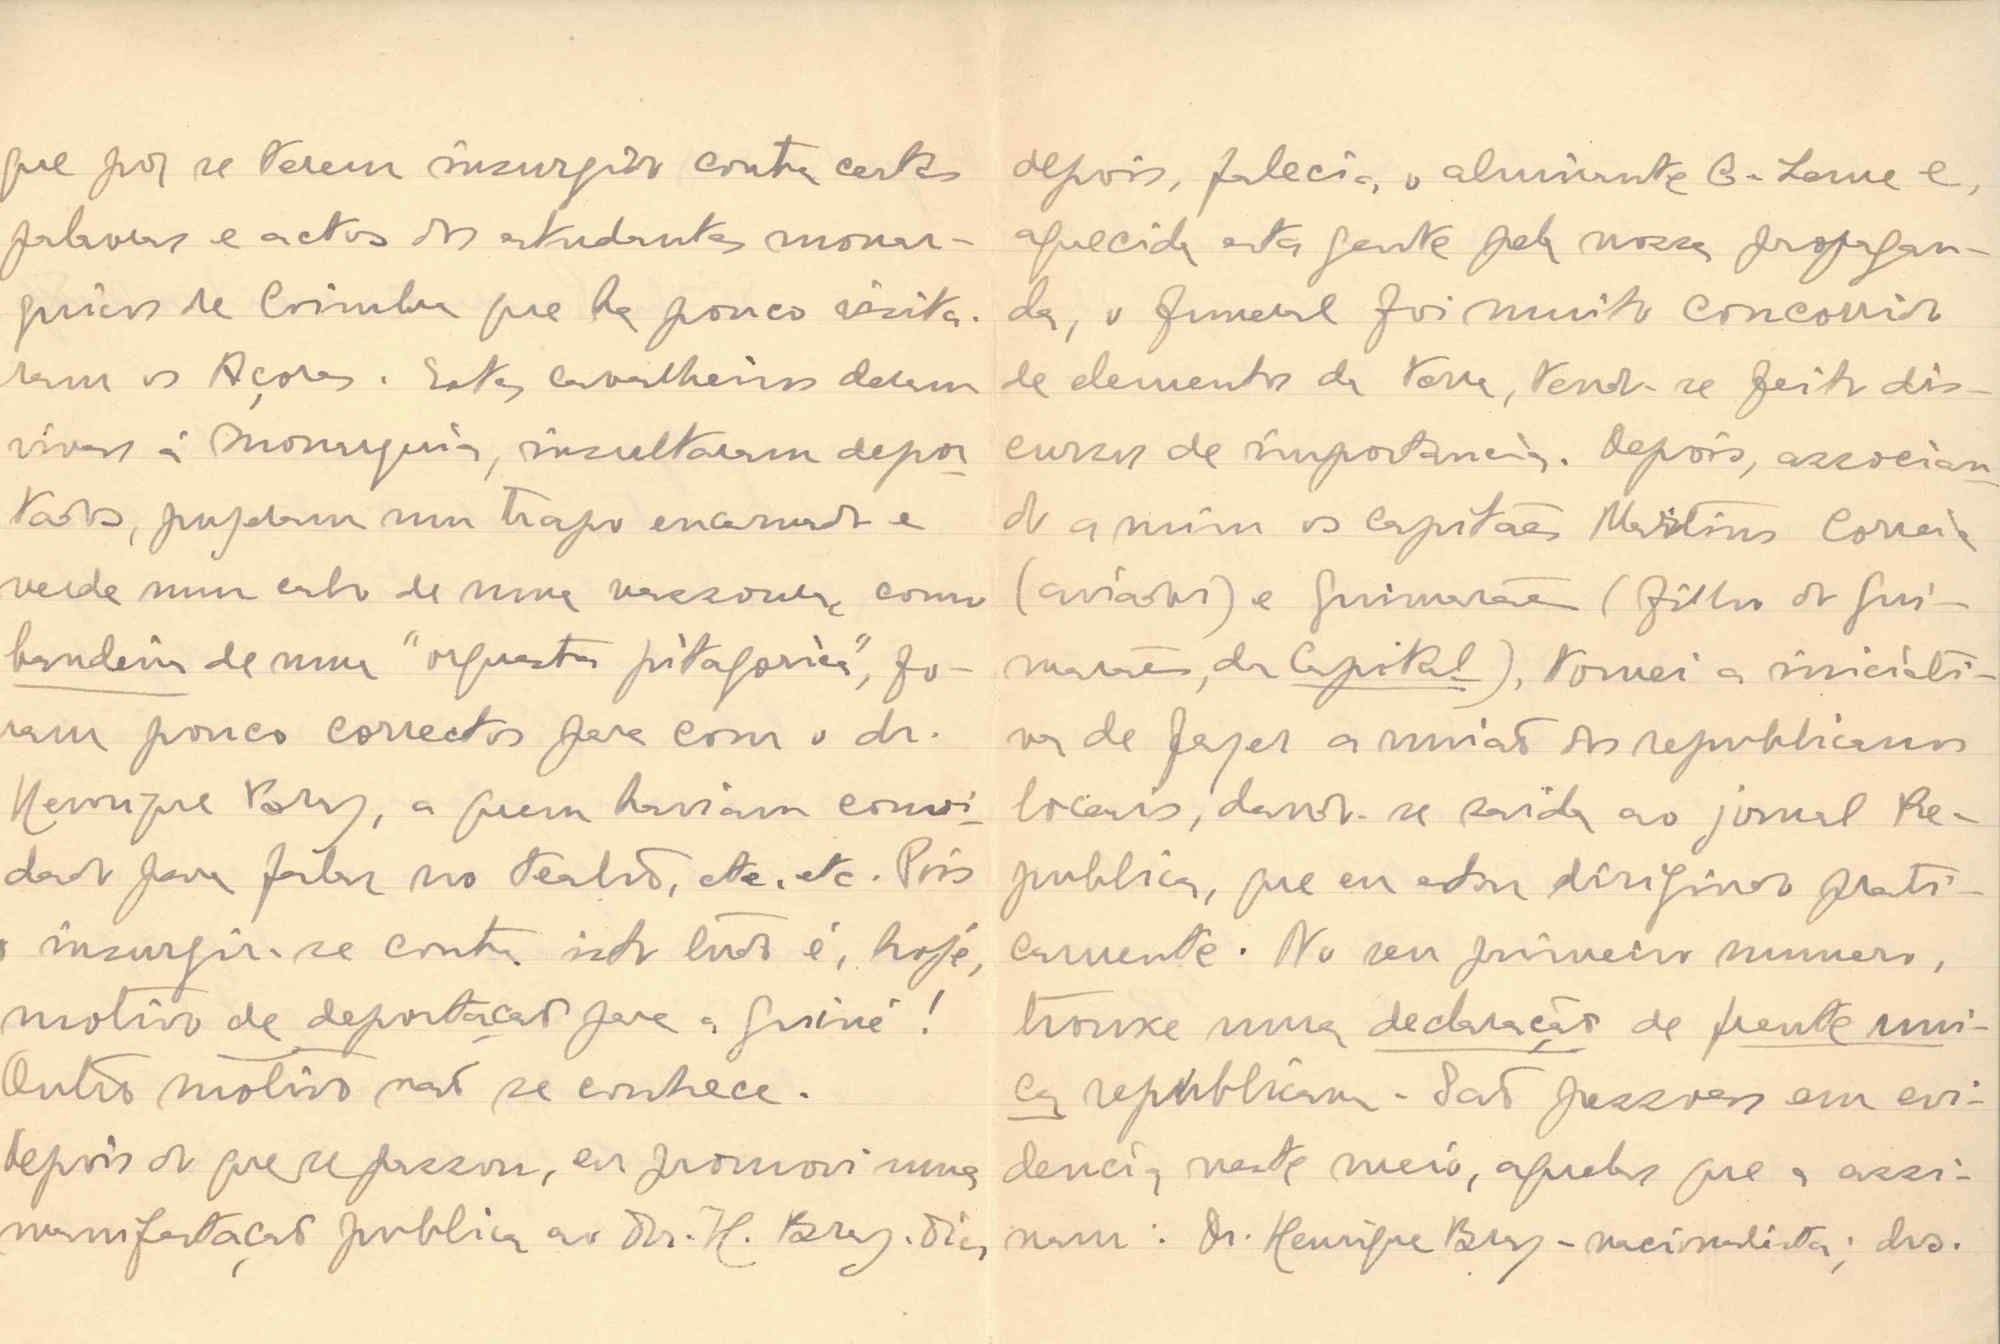 que por se terem insurgido contra certas
palavras e actos dos estudantes monar-
quicos de Coimbra que ha pouco visita-
ram os Açores. Estes cavalheiros deram
vivas á Monarquia, insultaram depor-
tados, puzeram um trapo encarnado e
verde num cabo de uma vassoura, como
bandeira de uma "orquestra pitagorica", fo-
ram pouco correctos para com o dr.
Henrique Braz, a quem haviam convi-
dado para falar no teatro, etc. etc. Pois
o insurgir-se contra isto tudo é, hoje,
motivo de deportação para a Guiné!
Outro motivo não se conhece.
Depois do que se passou, eu promovi uma
manifestação publica ao Dr. H. Braz. Dias
depois, falecia o almirante C. Leme e,
aquecida esta gente pela nossa propagan-
da, o funeral foi muito concorrido
de elementos da terra, tendo-se feito dis-
cursos de importancia. Depois, associan-
do a mim os capitães Martins Correia
(aviador) e Guimarães (filho do Gui-
marães, da Capital), tomei a iniciati-
va de fazer a união dos republicanos
locais, dando-se saida ao jornal Re-
publica, que eu estou dirigindo prati-
camente. No seu primeiro numero,
trouxe uma declaração de frente uni-
ca republicana. São pessoas em evi-
dencia neste meio, aquelas que a assi-
nam: Dr. Henrique Braz - nacionalista; drs.